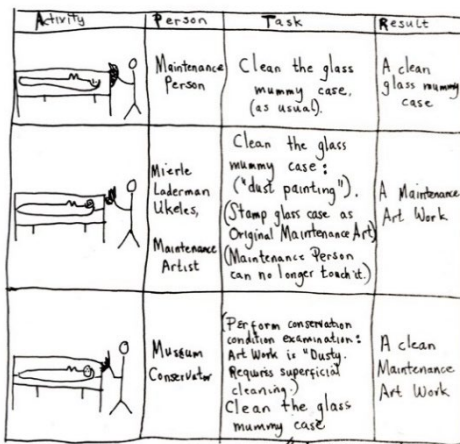 Activity
Person
Task
Result
Maintenance
Person
Clean the glass
mummy case,
(as usual).
A clean
glass mummy
case
Mierle
Laderman
Ukeles,
Maintenance
Artist
Clean the glass
mummy case:
("dust painting").
(Stamp glass case as
Original Maintenance Art)
(Maintenance Person
can no longer touch it.)
A Maintenance
Art Work
Museum
Conservator
(Perform conservation
condition examination:
Art Work is "Dusty.
Requires superficial
cleansing.)
Clean the glass
mummy case
A clean
Maintenance
Art Work